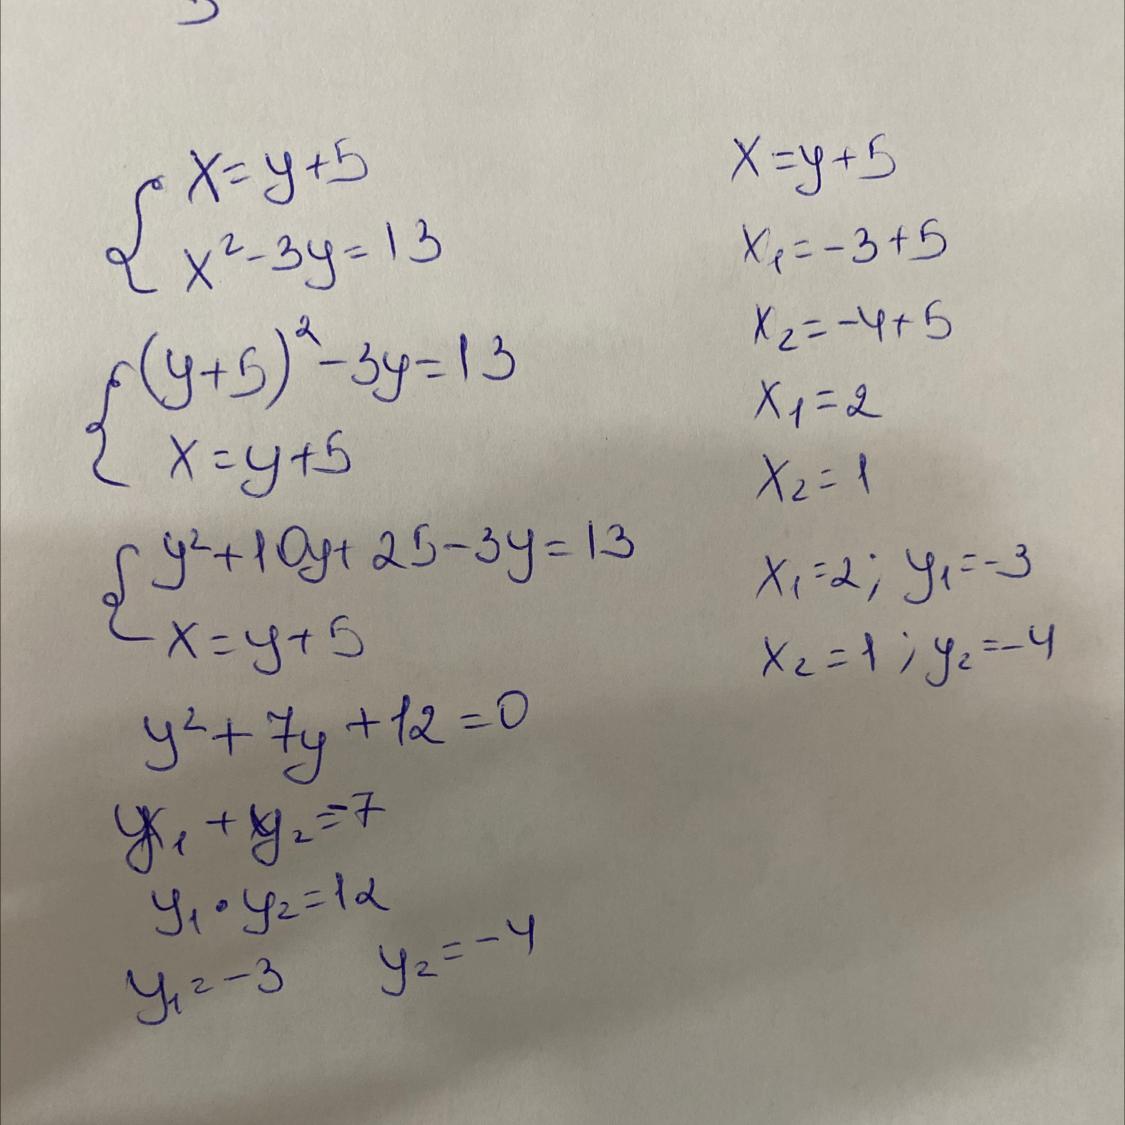 x=y+5
x²-3y=13
(y+5)²-3y=13
x=y+5
y²+10y+25-3y=13
x=y+5
y²+7y+12=0
y₁+y₂=-7
y₁•y₂=12
y₁=-3 y₂=-4
x=y+5
x₁=-3+5
x₂=-4+5
x₁=2
x₂=1
x₁=2; y₁=-3
x₂=1; y₂=-4